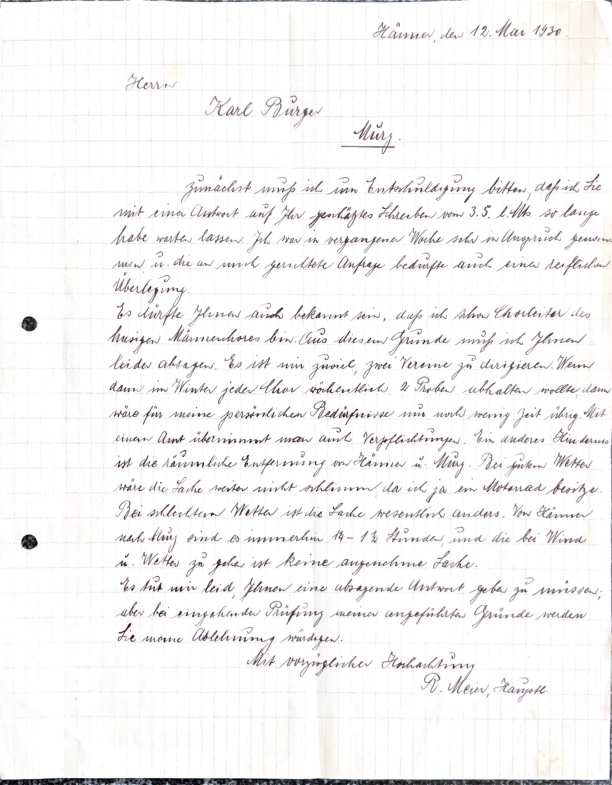 Hänner, den 12. Mai 1930.
Herrn
Karl Burger
Murg.
Zunächst muß ich um Entschuldigung bitten, daß ich Sie
mit einer Antwort auf Ihr geschätztes Schreiben vom 3.5. l. Mts so lange
habe warten lassen. Ich war in vergangener Woche sehr in Anspruch genom
men u. die an mich gerichtete Anfrage bedurfte auch einer reiflichen
Überlegung.
Es dürfte Ihnen auch bekannt sein, daß ich schon Chorleiter des
hiesigen Männerchores bin. Aus diesem Grunde muß ich Ihnen
leider absagen. Es ist mir zuviel, zwei Vereine zu dirigieren. Wenn
dann im Winter jeder Chor wöchentlich 2 Proben abhalten wollte, dann
wäre für meine persönlichen Bedürfnisse nur noch wenig Zeit übrig. Mit
einem Amt übernimmt man auch Verpflichtungen. Ein anderes Hindernis
ist die räumliche Entfernung von Hänner u. Murg. Bei gutem Wetter
wäre die Sache weiter nicht schlimm, da ich ja ein Motorrad besitze.
Bei schlechtem Wetter ist die Sache wesentlich anders. Von Hänner
nach Murg sind es immerhin Stunden, und die bei Wind
u. Wetter zu gehen ist keine angenehme Sache.
Es tut mir leid, Ihnen eine absagende Antwort geben zu müssen;
aber bei eingehender Prüfung meiner angeführten Gründe werden
Sie meine Ablehnung würdigen.
Mit vorzüglicher Hochachtung
R. Meier, Hauptl.